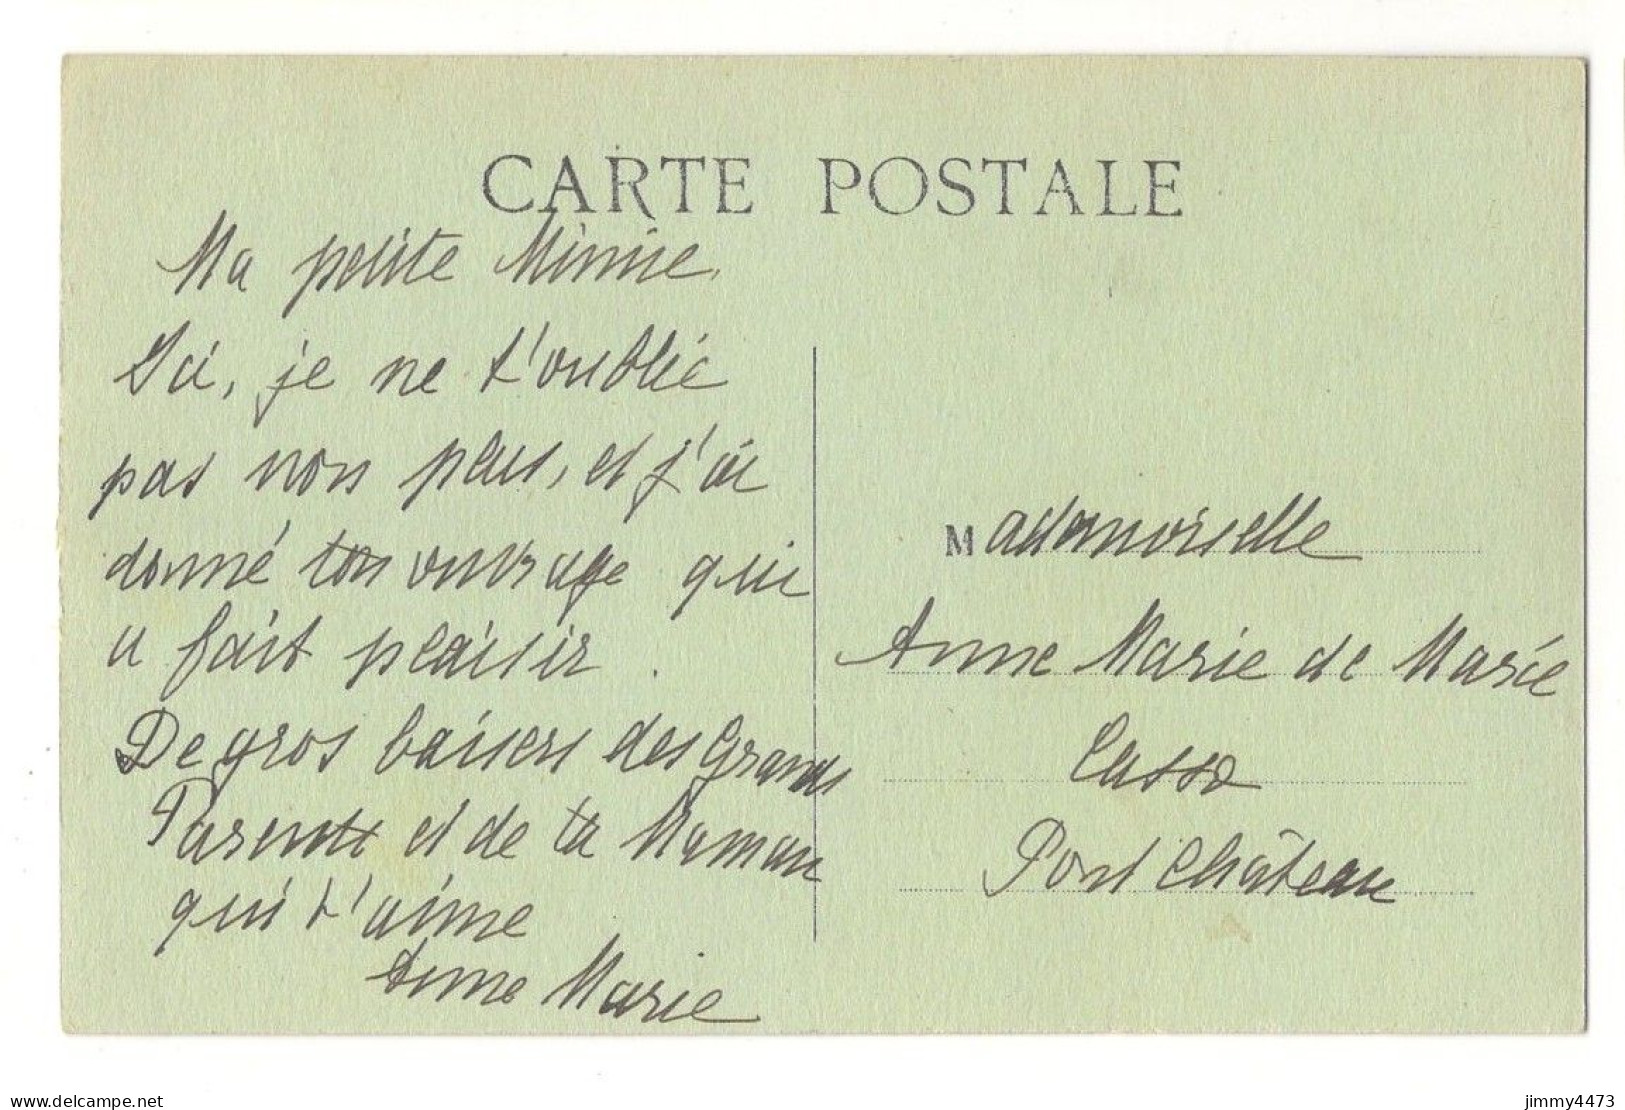 CARTE POSTALE
Ma petite Minnie,
Ici, je ne t'oublie
pas non plus, et j'ai
donné ton ouvrage qui
a fait plaisir.
De gros baisers des Grands
Parents et de ta Maman
qui t'aime
Anne Marie
Mademoiselle
Anne Marie de Marée
Casso
Pont Château
www.delcampe.net
jimmy4473